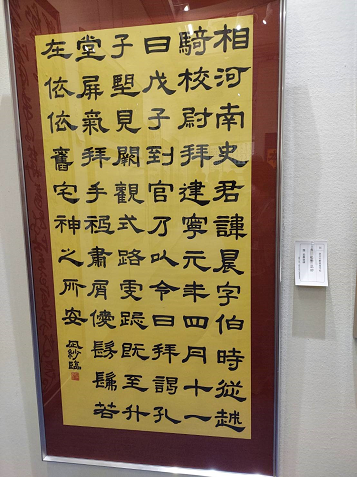 相河南史君諱晨字伯時從越
騎校尉拜建寧元年四月十一
日戊子到官乃以令日拜謁孔
子望見闕觀式路虔跽既至升
堂屏氣拜手祗肅屑僾髣髴若
在依依舊宅神之所安
紗臨